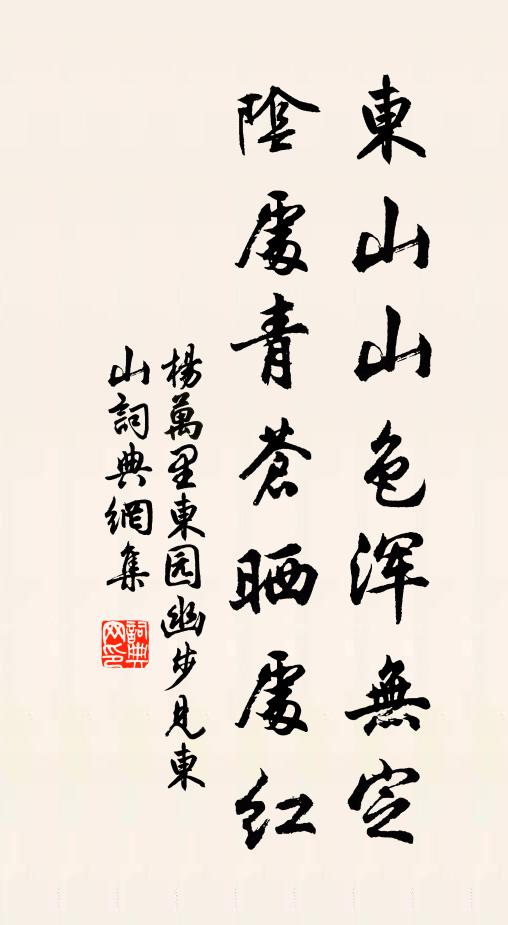 東山山色浑無定
陰處青蒼晒處红
楊萬里東园幽步見東
山詞典網集
詞典网印